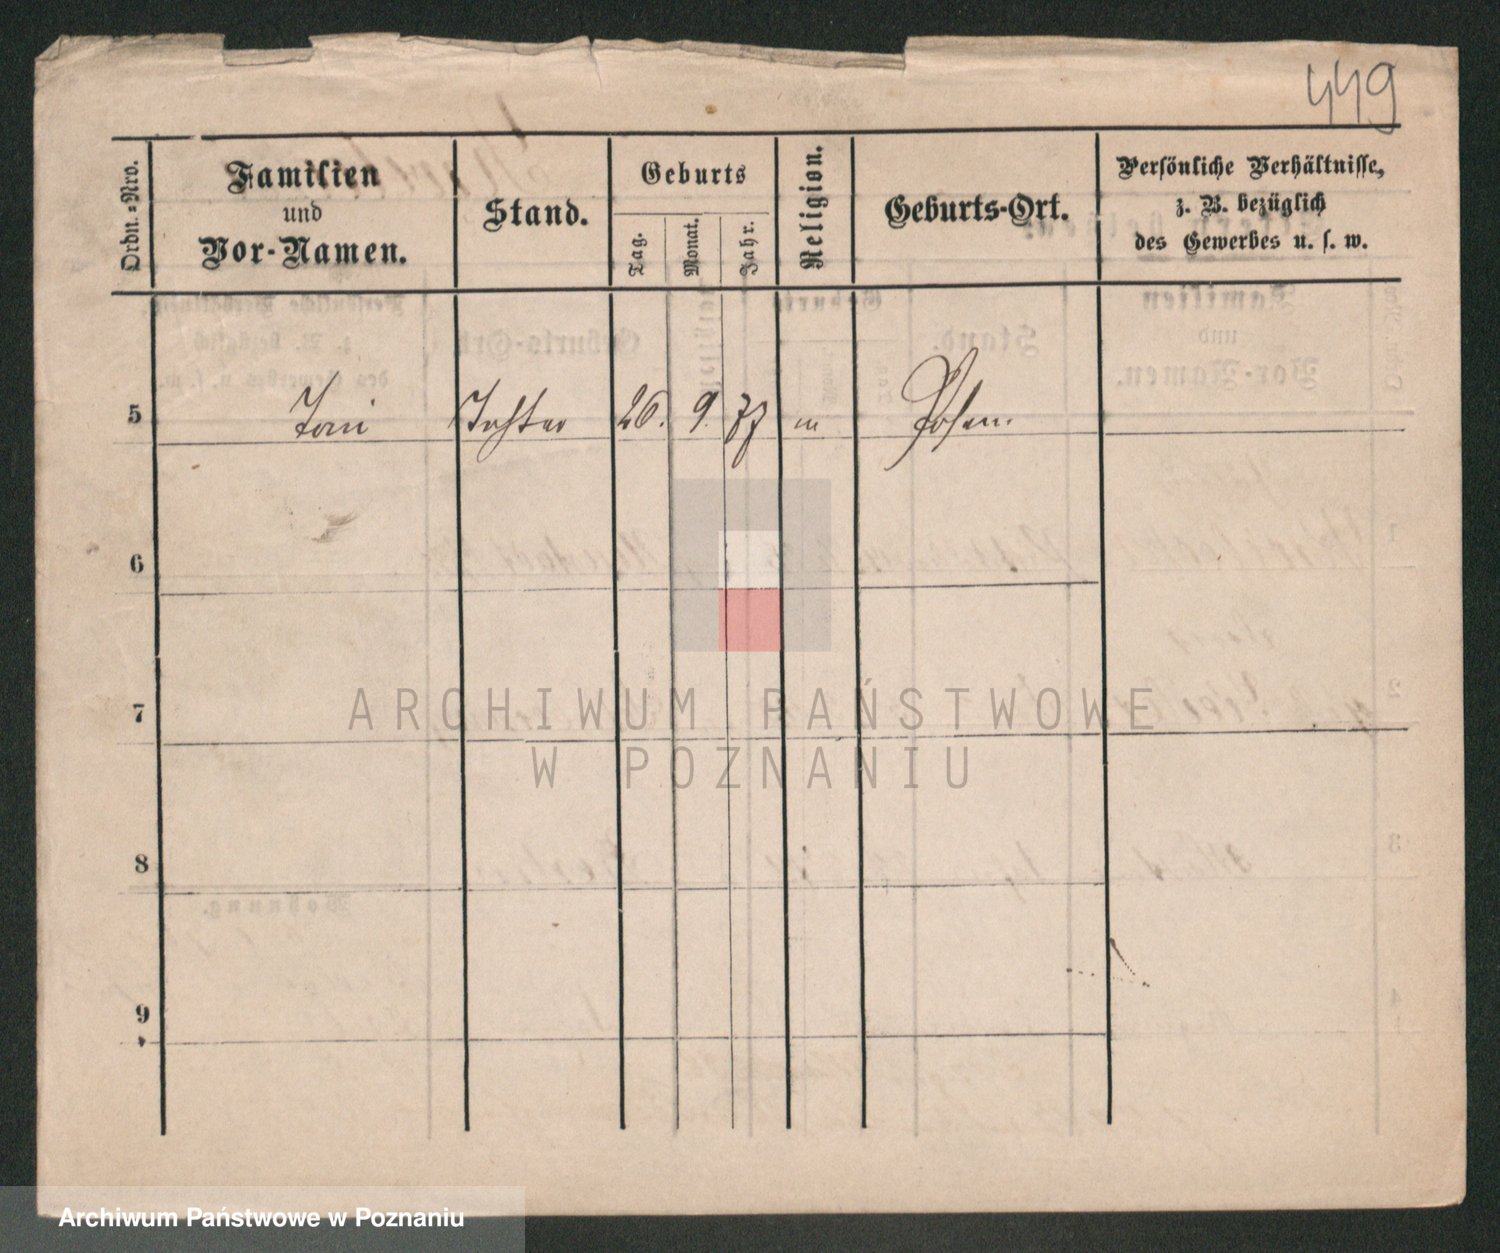 449
Ordn.-Nro.
Familien
und
Vor-Namen.
Stand.
Geburts
Tag.
Monat.
Jahr.
Religion.
Geburts-Ort.
Persönliche Verhältnisse,
z. B. bezüglich
des Gewerbes u. s. w.
5 Toni Tochter 26. 9. 77 m Posen
6
7
8
9
ARCHIWUM PAŃSTWOWE
W POZNANIU
Archiwum Państwowe w Poznaniu